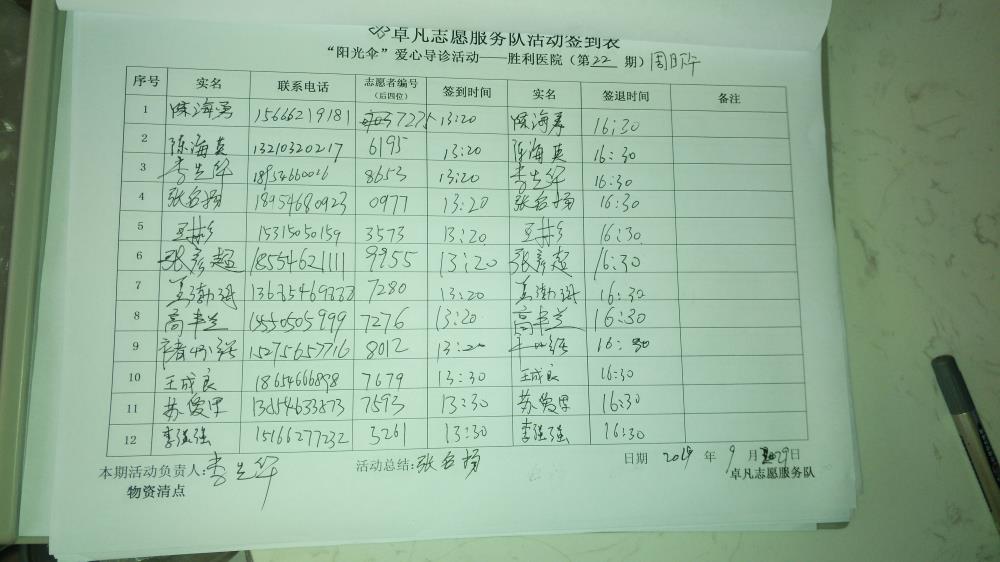 卓凡志愿服务队活动签到表
“阳光伞”爱心导诊活动——胜利医院（第22期）周日午
序号 实名 联系电话 志愿者编号（后四位） 签到时间 实名 签退时间 备注
1 陈海勇 15666219181 7275 13:20 陈海勇 16:30
2 陈海英 13210320217 6195 13:20 陈海英 16:30
3 李先华 18954660026 8653 13:20 李先华 16:30
4 张名扬 18954680923 0977 13:20 张名扬 16:30
5 15315050159 3573 13:20 16:30
6 张彦超 18554621111 9955 13:20 张彦超 16:30
7 孟渤 7280 13:20 孟渤 16:30
8 高丰兰 7276 13:20 高丰兰 16:30
9 15275657716 8012 13:20 16:30
10 王成良 18654666898 7679 13:30 王成良 16:30
11 苏俊果 13854633873 7593 13:30 苏俊果 16:30
12 李强强 15166277232 5261 13:30 李强强 16:30
本期活动负责人:李先华 活动总结:张名扬 日期 2019 年 9 月 29日
物资清点 卓凡志愿服务队